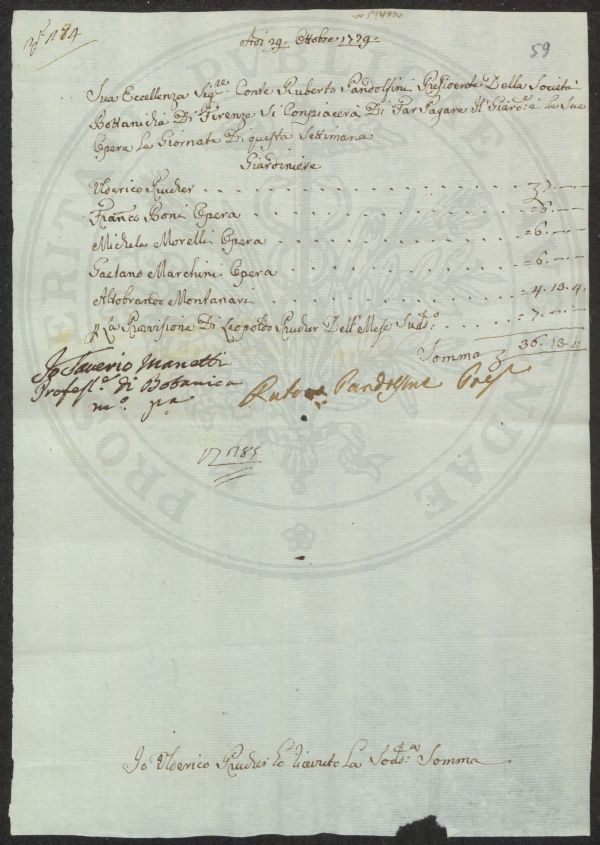 59
Adi 29. Ottobre 1779.
Sua Eccellenza Sig.re Conte Ruberto Pandolfini Presidente Della Società
Bottanicha Di Firenze Si Conpiacerà Di Far Pagare Al Giard.e e le Sue
Opere La Giornata Di questa Settimana
Giardiniere
Ulderico Prucher
Franco Boni Opera =6.
Michele Morelli Opera =6.
Gaetano Marchini Opera =6.
Altobrando Montanari =4.13.4
La Provisione Di Leopoldo Prucher Dell' Mese Sud.o =7.
Somma 36.13.4
Io Saverio Manetti
Profess.e di Botanica
m.o p.a
Rub.o Pandolfini Pres.
Io Ulderico Prucher ho ricevuto La Sod.a Somma
PROSPERITATI PUBLICAE AUGENDAE